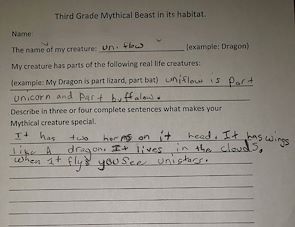 Third Grade Mythical Beast in its habitat.
Name:
The name of my creature: uniflow (example: Dragon)
My creature has parts of the following real life creatures:
(example: My Dragon is part lizard, part bat) uniflow is Part
unicorn and Part buffalow.
Describe in three or four complete sentences what makes your
Mythical creature special.
It has two horns on it head. It has wings
like A dragon. It lives in the clouds.
when it flys you see unistars.